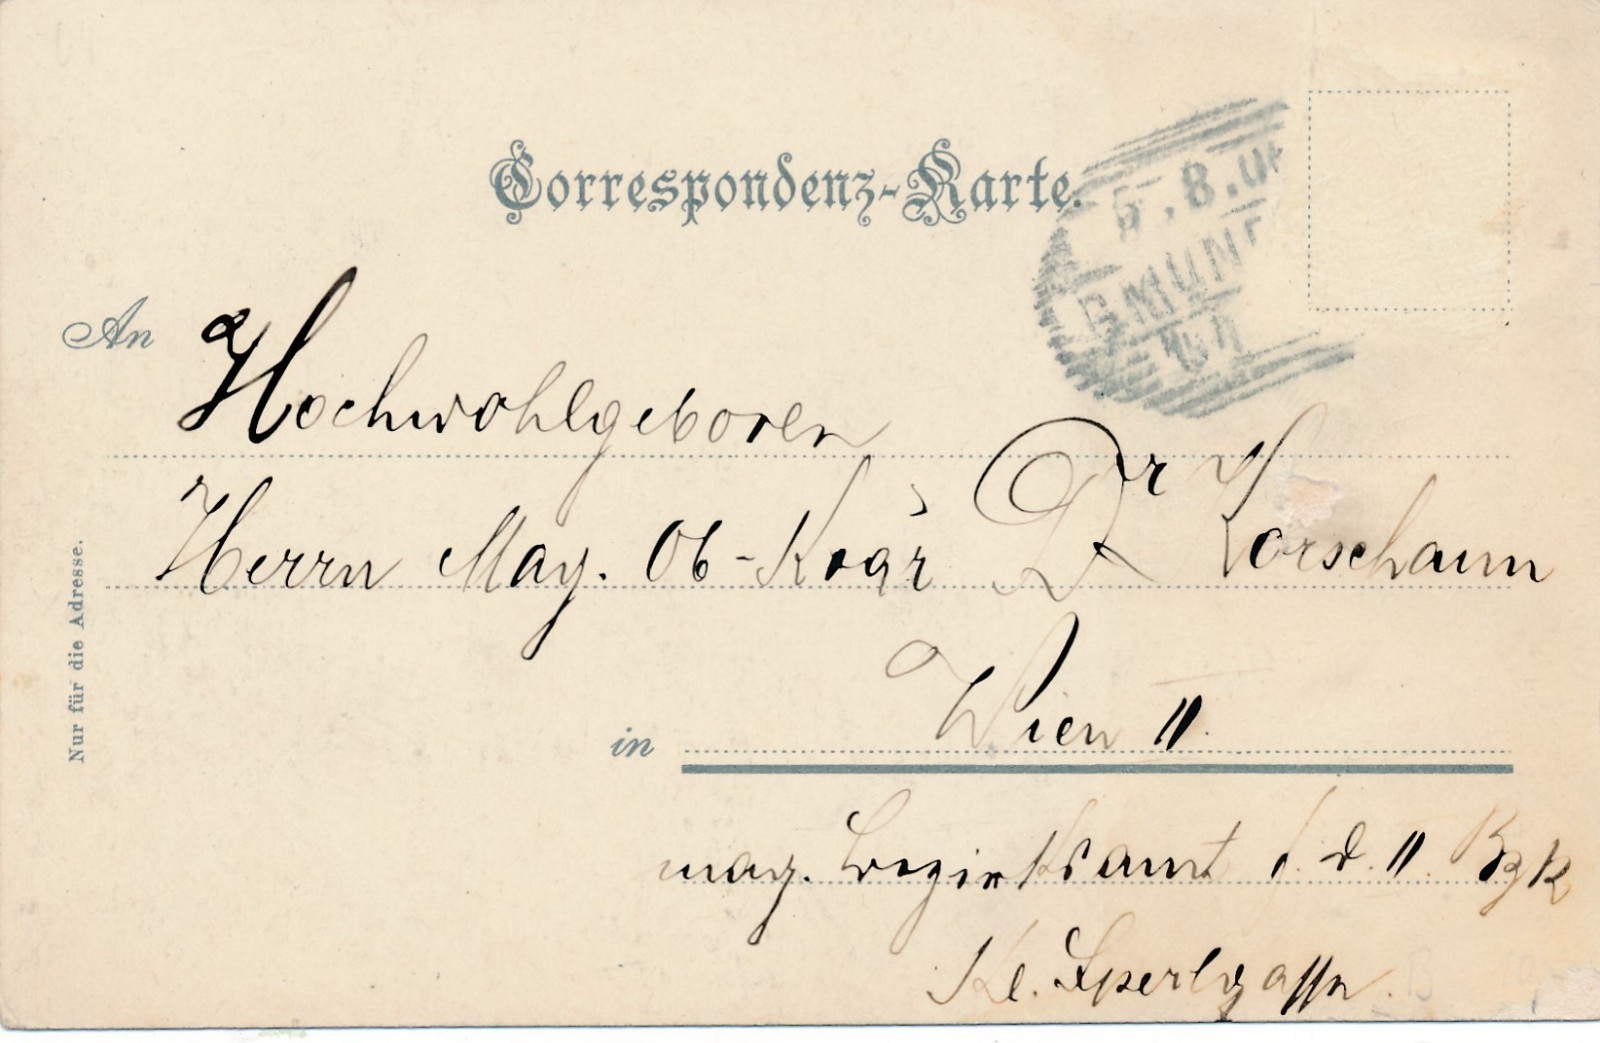 Correspondenz-Karte.
5.8.0
GMUND
An
Hochwohlgeboren
Herrn Mag. Ob-Koär Dr
Nur für die Adresse.
in Wien II.
mag. Bezirksamt f. d. II. Bzk
Kl. Sperlgasse.